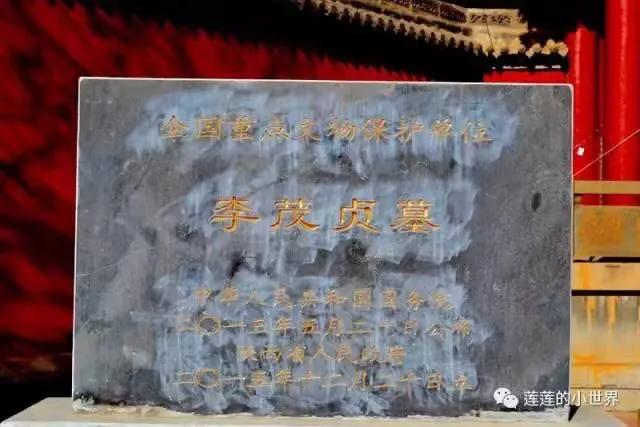 全国重点文物保护单位
李茂贞墓
中华人民共和国国务院
二〇一三年五月二十日公布
陕西省人民政府
二〇一五年十二月二十日立
莲莲的小世界